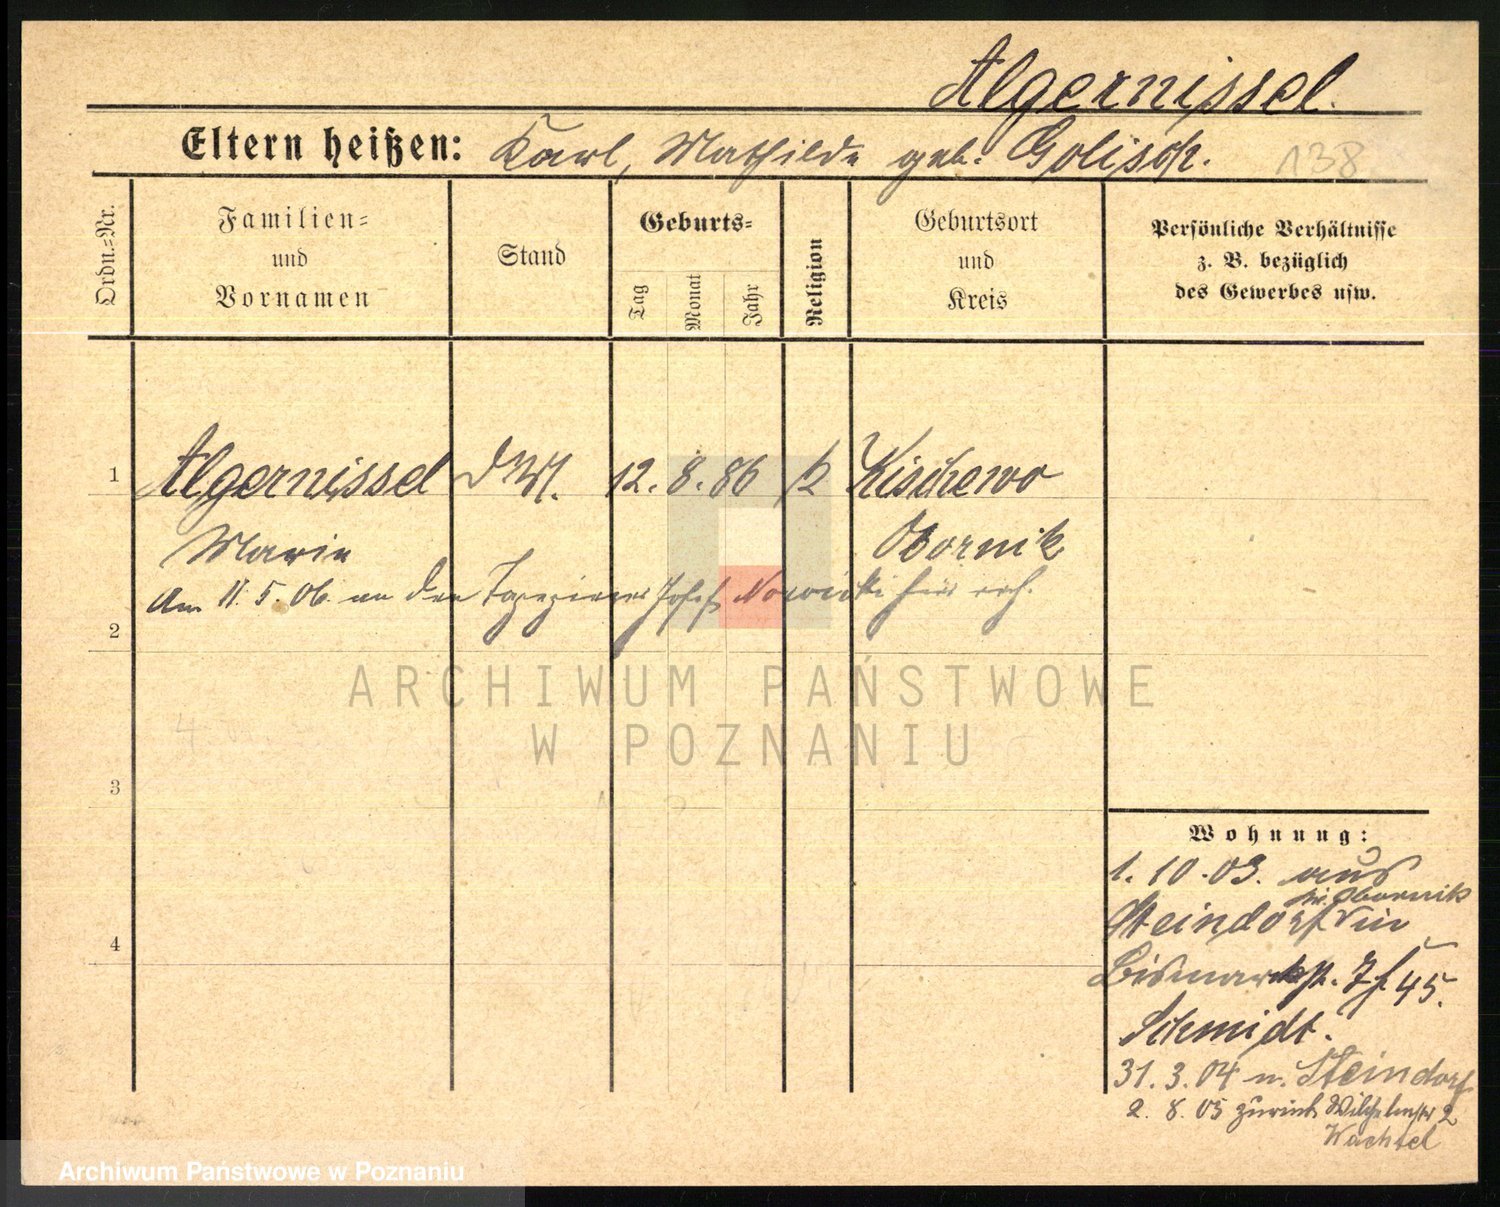 Algernissel.
Eltern heißen: Karl, Mathilde geb. Golisch.
138
Ordn.=Nr.
Familien=
und
Vornamen
Stand
Geburts=
Tag
Monat
Jahr
Religion
Geburtsort
und
Kreis
Persönliche Verhältnisse
z. B. bezüglich
des Gewerbes usw.
1
Algernissel
12. 8. 86
Kischewo
Marie
Obornik
Am 11. 5. 06. an den Tapezierer Josef Nowicki hier verh.
2
3
4
ARCHIWUM PAŃSTWOWE
W POZNANIU
Wohnung:
1. 10. 03. aus
Kr. Obornik
Steindorf
Bismarckstr. 7
45.
Schmidt.
31. 3. 04 n. Steindorf
2. 8. 05 zurück Wilhelmstr 2
Wachtel
Archiwum Państwowe w Poznaniu